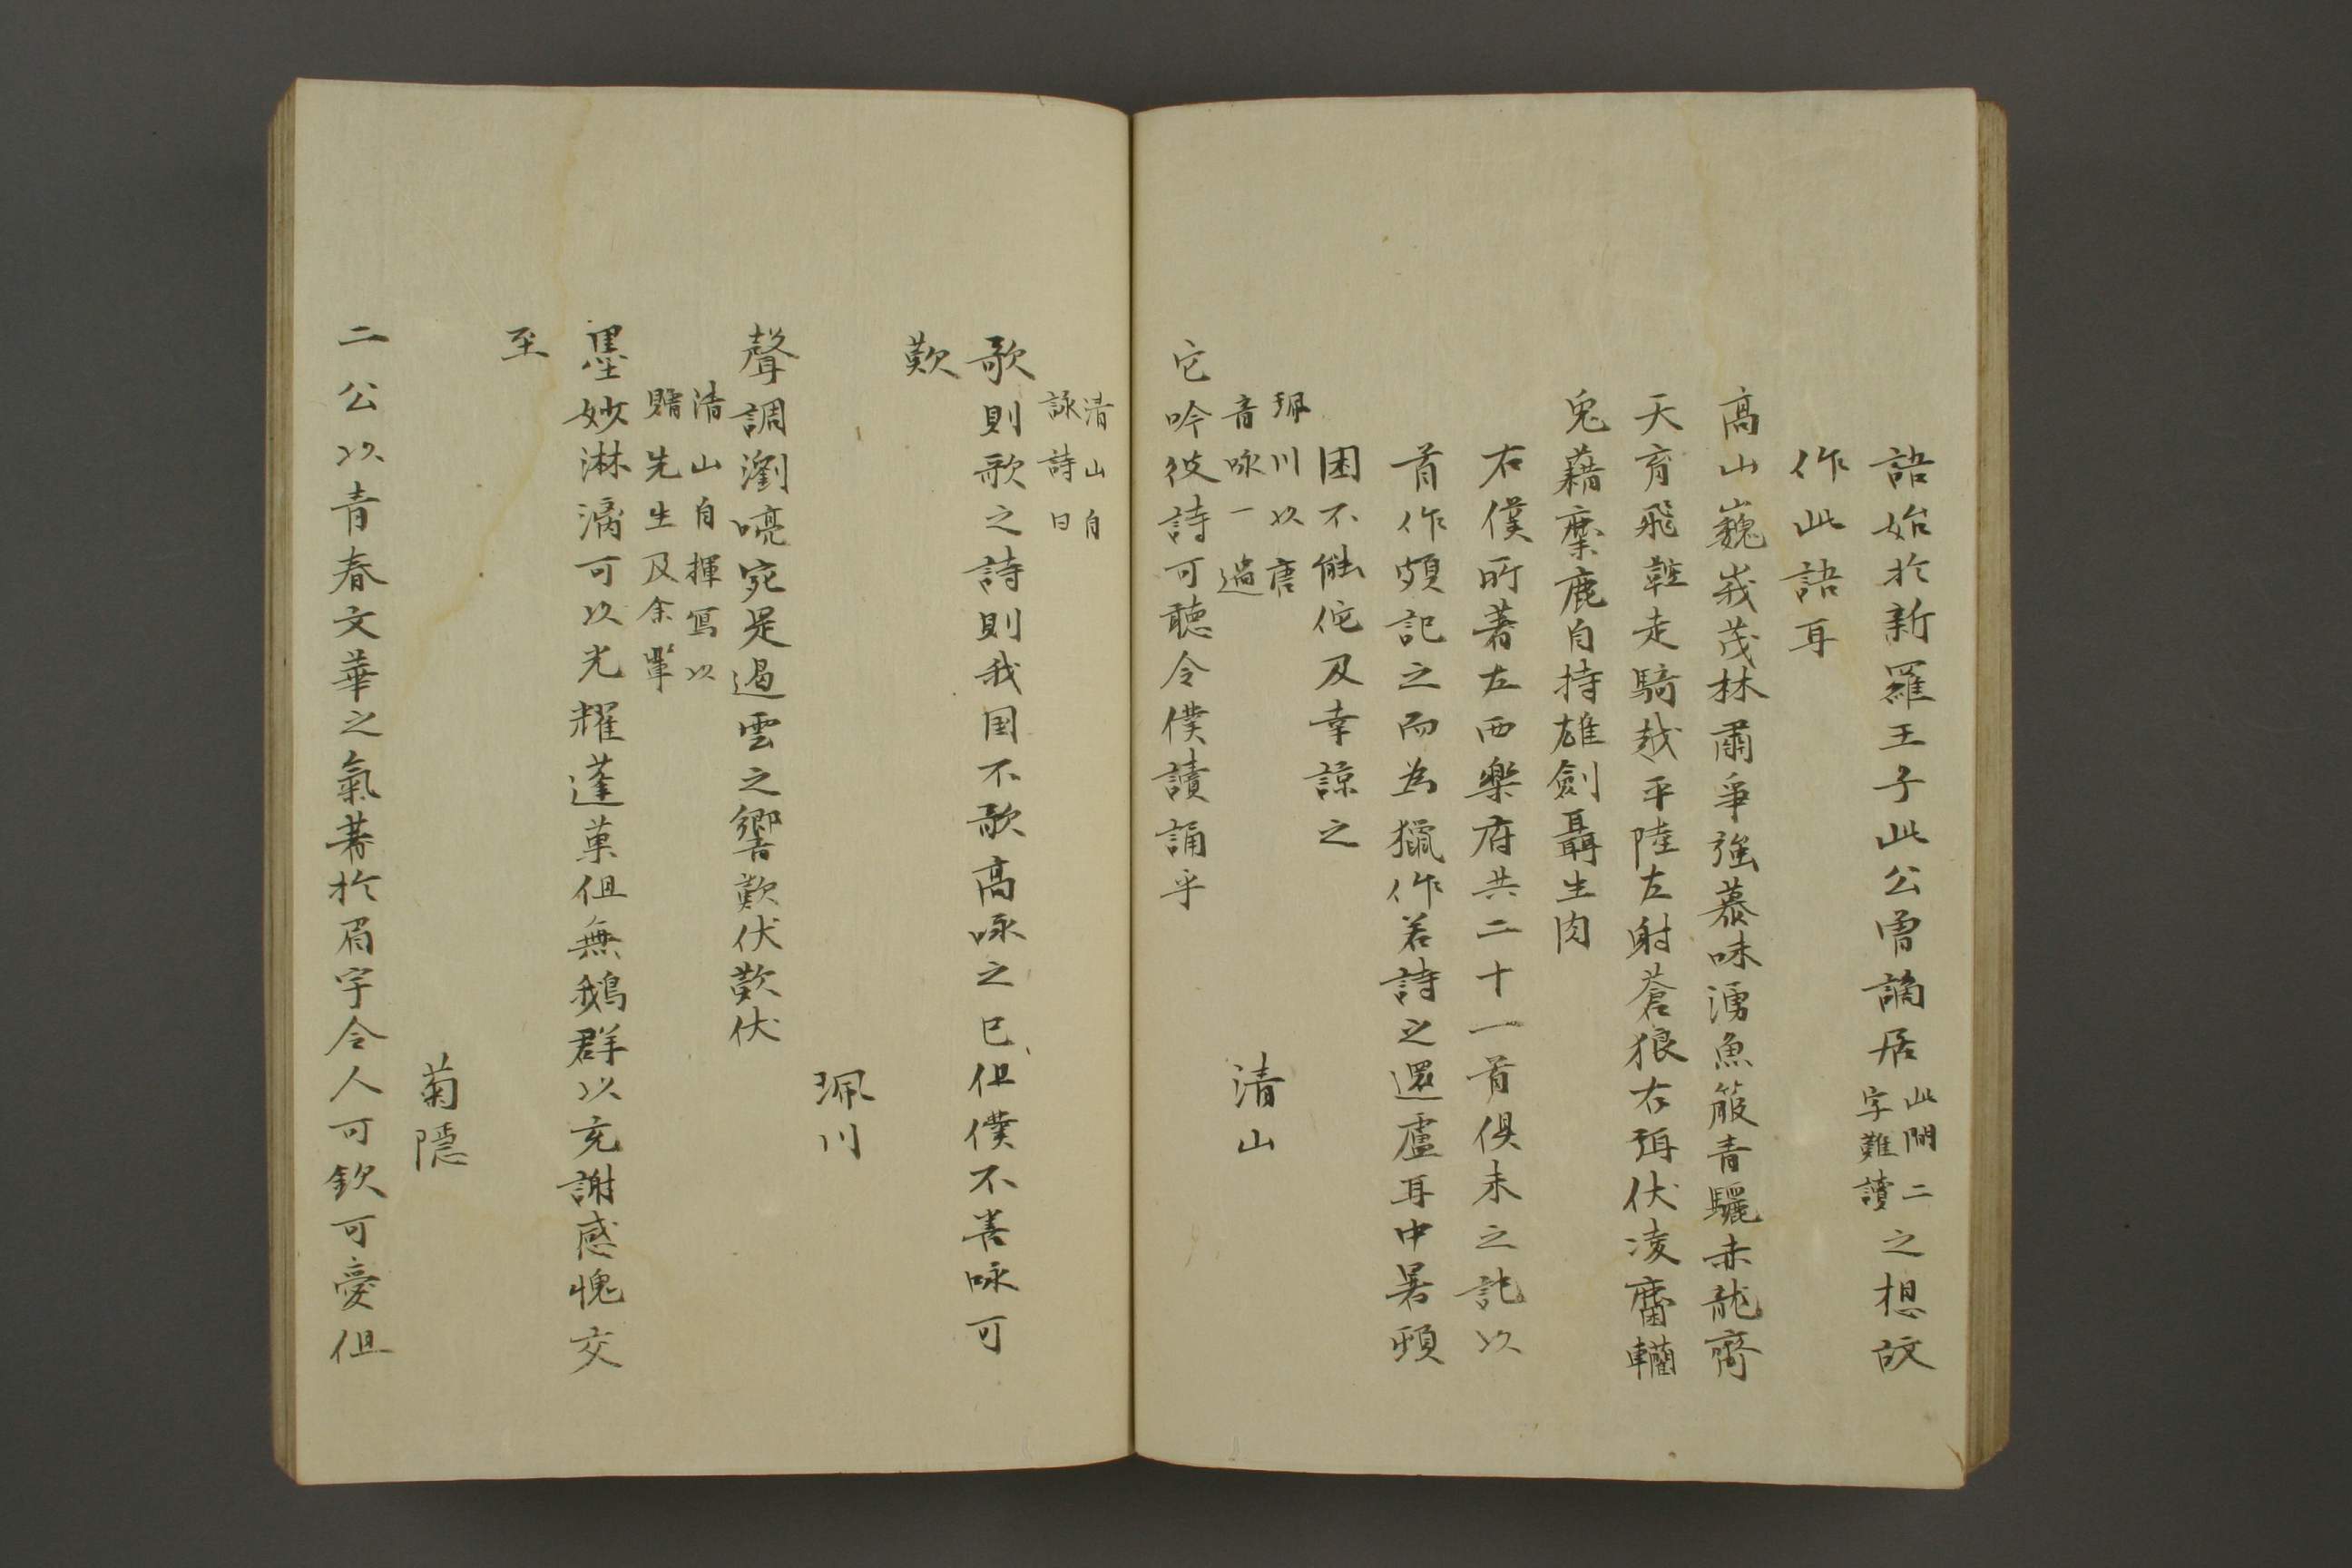 語始於新羅王子此公曾謫居此間二字難讀之想故
作此語耳
高山巍峩茂林肅爭強慕味湧魚箙青驪赤龍齊
天育飛鞚走騎越平陸左射蒼狼右殪伏凌麕轥
兎藉麋鹿自持雄劍聶生肉
右僕所著左西樂府共二十一首俱未之記以
首作頗記之而為獵作若詩之還廬耳中暑頓
困不能佗及幸諒之
珮川以唐
音咏一過
清山
它吟彼詩可聴令僕讀誦乎
清山自
詠詩曰
歌則歌之詩則我国不歌高咏之已但僕不善咏可
歎
珮川
聲調瀏喨宛是遏雲之響歎伏歎伏
清山自揮寫以
贈先生及余輩
墨妙淋漓可以光耀蓬蓽但無鵝群以充謝感愧交
至
菊隠
二公以青春文華之氣著於眉宇令人可欽可愛但